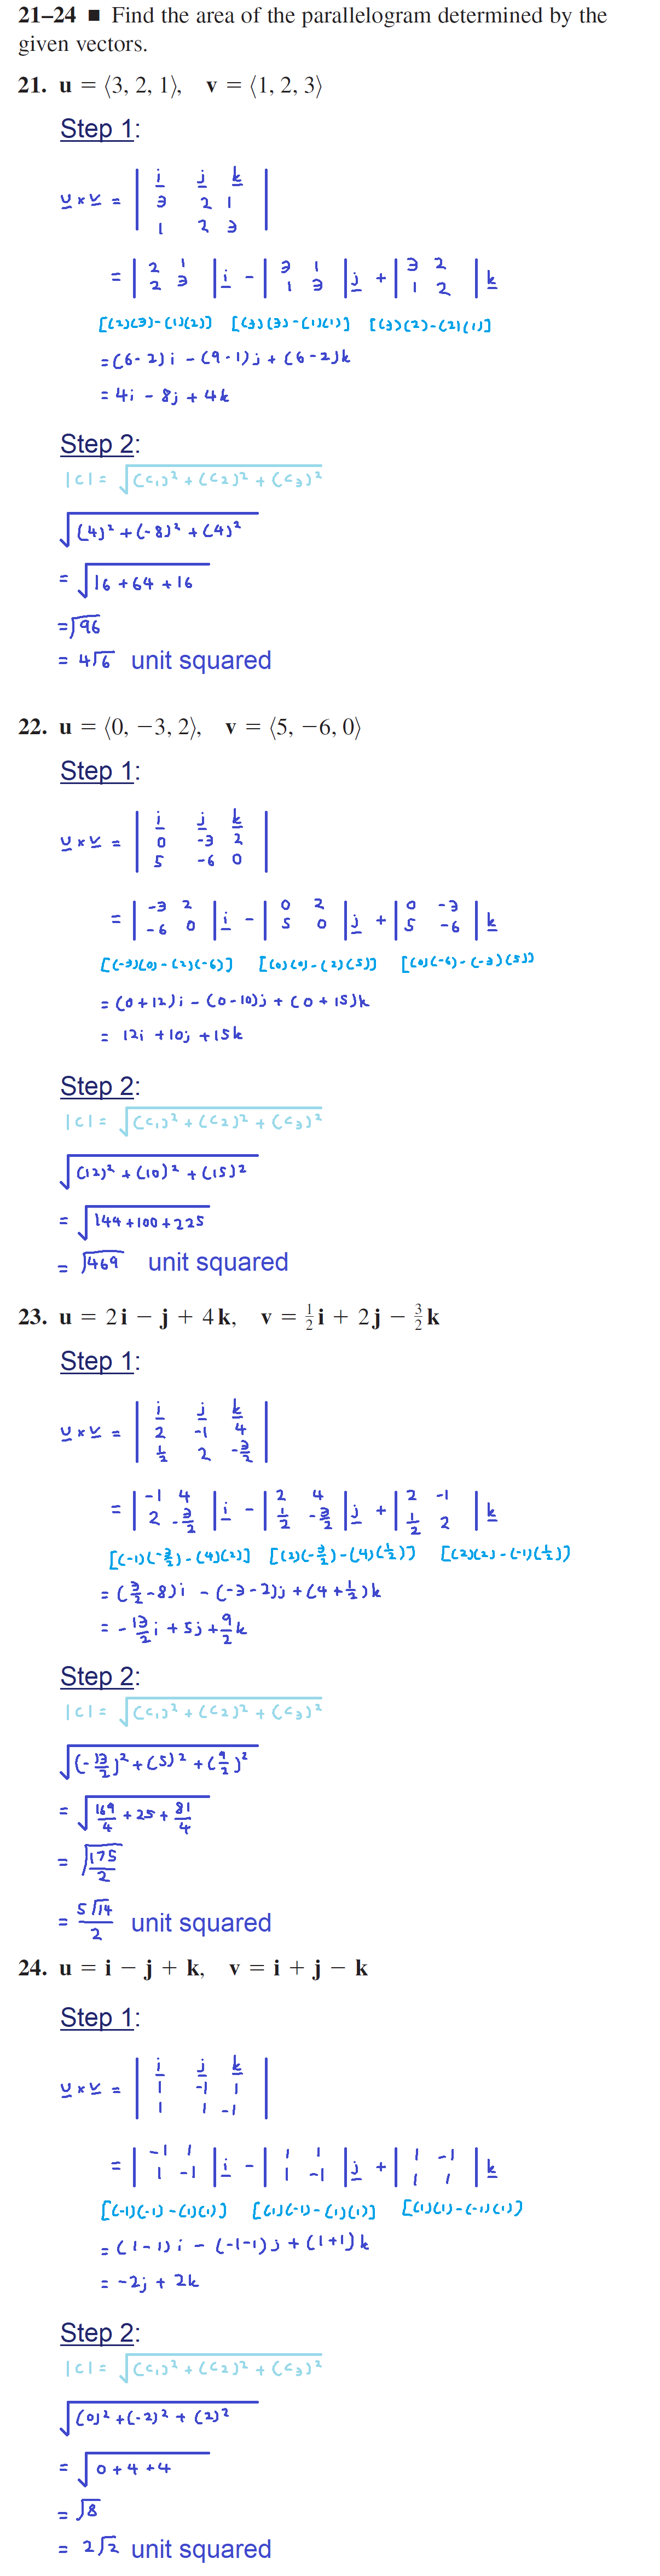 21–24 ■ Find the area of the parallelogram determined by the
given vectors.
21. u = ⟨3, 2, 1⟩, v = ⟨1, 2, 3⟩
Step 1:
i j k
u × v = | 3 2 1 |
1 2 3
= | 2 1 | i - | 3 1 | j + | 3 2 | k
2 3 1 3 1 2
[(2)(3)-(1)(2)] [(3)(3)-(1)(1)] [(3)(2)-(2)(1)]
= (6-2)i - (9-1)j + (6-2)k
= 4i - 8j + 4k
Step 2:
|c| = √(c₁)² + (c₂)² + (c₃)²
√(4)² + (-8)² + (4)²
= √16 + 64 + 16
= √96
= 4√6 unit squared
22. u = ⟨0, −3, 2⟩, v = ⟨5, −6, 0⟩
Step 1:
i j k
u × v = | 0 -3 2 |
5 -6 0
= | -3 2 | i - | 0 2 | j + | 0 -3 | k
-6 0 5 0 5 -6
[(-3)(0)-(2)(-6)] [(0)(0)-(2)(5)] [(0)(-6)-(-3)(5)]
= (0+12)i - (0-10)j + (0+15)k
= 12i + 10j + 15k
Step 2:
|c| = √(c₁)² + (c₂)² + (c₃)²
√(12)² + (10)² + (15)²
= √144+100+225
= √469 unit squared
23. u = 2i − j + 4k, v = ½i + 2j − 3/2k
Step 1:
i j k
u × v = | 2 -1 4 |
1/2 2 -3/2
= | -1 4 | i - | 2 4 | j + | 2 -1 | k
2 -3/2 1/2 -3/2 1/2 2
[(-1)(-3/2)-(4)(2)] [(2)(-3/2)-(4)(1/2)] [(2)(2)-(-1)(1/2)]
= (3/2-8)i - (-3-2)j + (4+1/2)k
= -13/2i + 5j + 9/2k
Step 2:
|c| = √(c₁)² + (c₂)² + (c₃)²
√(-13/2)² + (5)² + (9/2)²
= √169/4 + 25 + 81/4
= √175/2
= 5√14/2 unit squared
24. u = i − j + k, v = i + j − k
Step 1:
i j k
u × v = | 1 -1 1 |
1 1 -1
= | -1 1 | i - | 1 1 | j + | 1 -1 | k
1 -1 1 -1 1 1
[(-1)(-1)-(1)(1)] [(1)(-1)-(1)(1)] [(1)(1)-(-1)(1)]
= (1-1)i - (-1-1)j + (1+1)k
= -2j + 2k
Step 2:
|c| = √(c₁)² + (c₂)² + (c₃)²
√(0)² + (-2)² + (2)²
= √0 + 4 + 4
= √8
= 2√2 unit squared